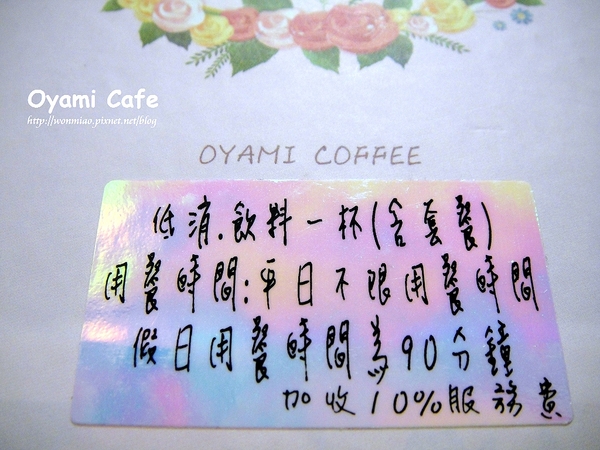 Oyami Cafe
http://wonmiao.pixnet.net/blog
OYAMI COFFEE
低消.飲料一杯(含套餐)
用餐時間:平日不限用餐時間
假日用餐時間為90分鐘
加收10%服務費